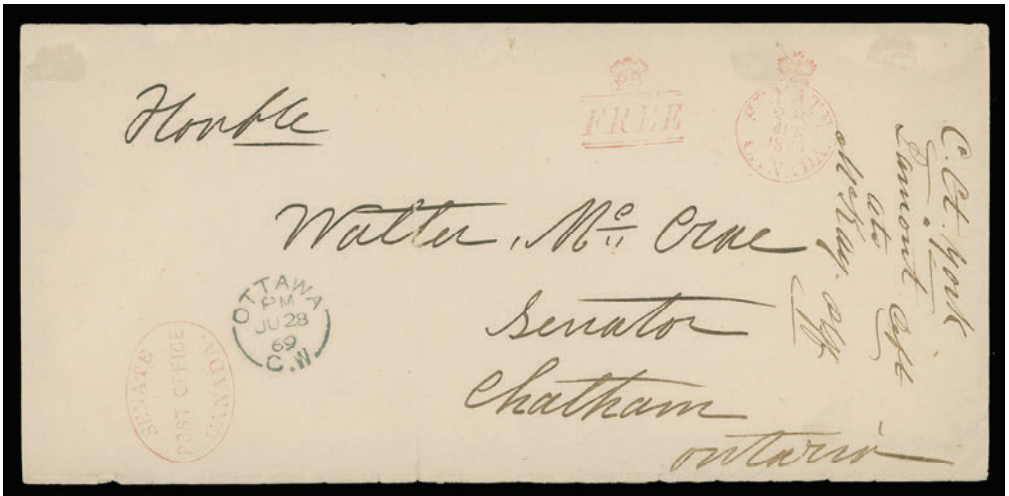 Honble
FREE
SENATE
CANADA.
Walter, Mc Crae
Senator
Chatham
Ontario
OTTAWA
PM
JU 28
69
C.W
SENATE
POST OFFICE
CANADA.
C. Ct. York
Lamont
ats
McKay.